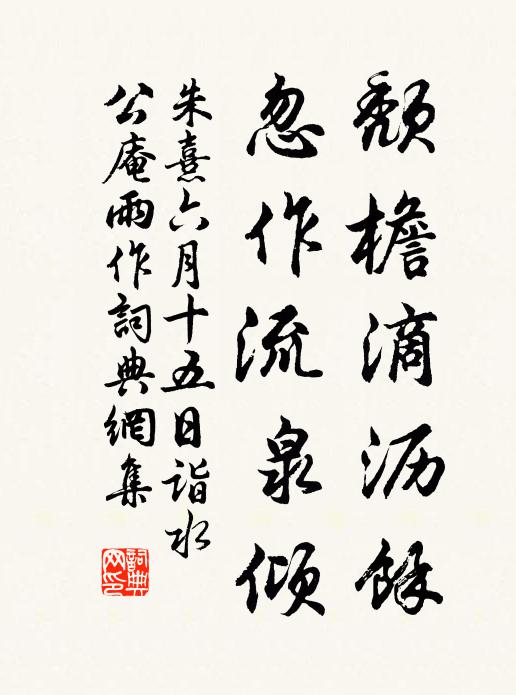 颓檐滴沥馀
忽作流泉倾
朱熹六月十五日诣水
公庵雨作詞典網集
詞典网印